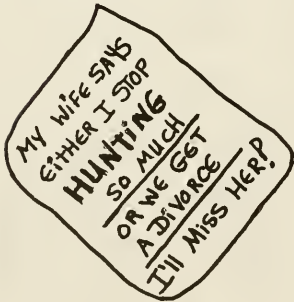 MY WiFE SAYS
EiTHER I STOP
HUNTiNG
SO MUCH
OR WE GET
A DiVORCE
I'll MiSS HER!